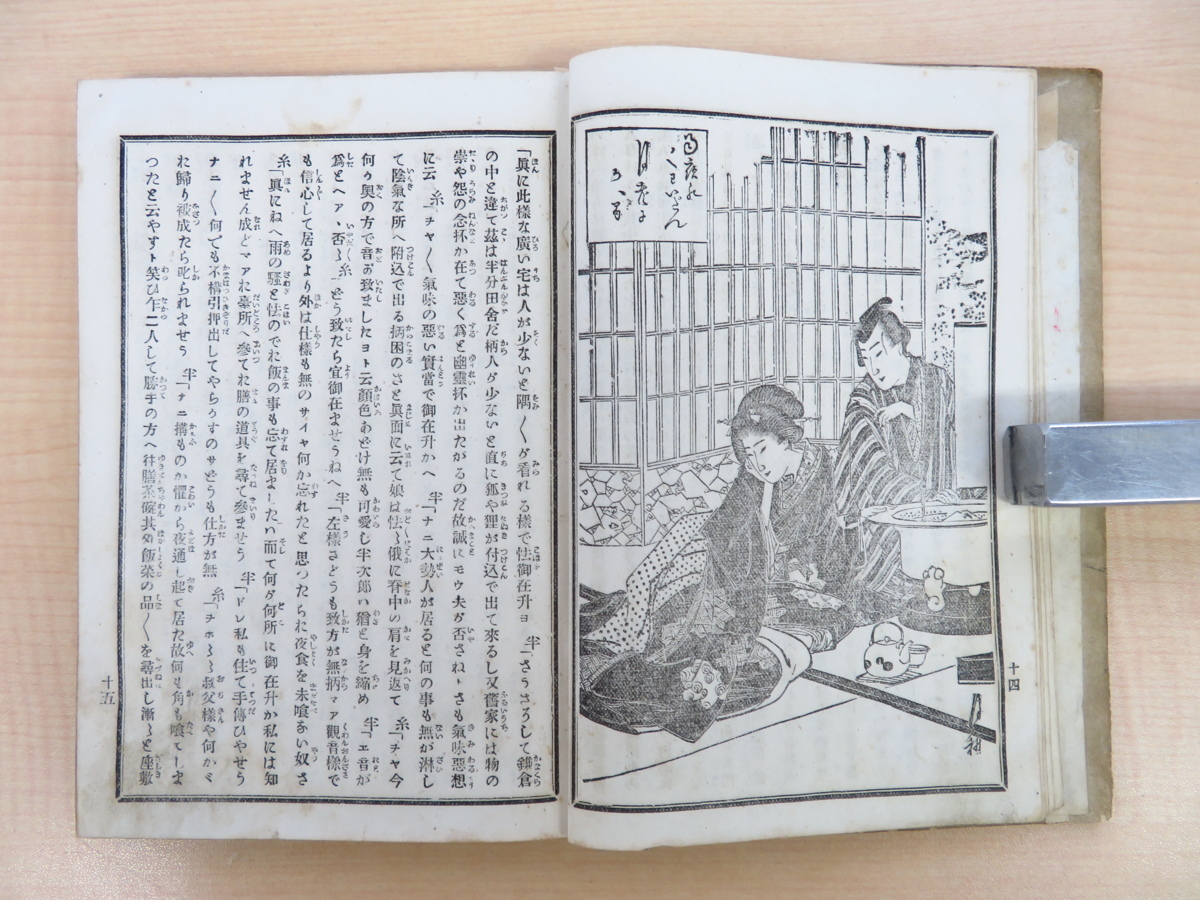 十四
「眞に此樣な廣い宅は人が少ないと隅〳〵が看れる樣で怯御在升ヨ 半「さうさうして鎌倉
の中と違て茲は半分田舍だ柄人が少ないと直に狐や狸が付込で出て來るし又舊家には物の
祟や怨の念抔が在て惡く爲と幽靈抔が出たがるのだ故誠にモウ夫が否さね、さも氣味惡想
に云 糸「チヤ〳〵氣味の惡い實當で御在升かへ 半「ナニ大勢人が居ると何の事も無が淋し
て陰氣な所へ附込で出る柄困のさと眞面に云て娘は怯〳〵俄に脊中の肩を見返て 糸「チヤ今
何か奥の方で音が致ましたヨト云顏色あどけ無も可愛し半次郎ハ猶と身を縮め 半「エ音が
爲とヘア、否〳〵 糸「どう致たら宜御在ませうねへ 半「左樣さどうも致方が無柄マア觀音樣で
も信心して居るより外は仕樣も無のサイヤ何か忘れたと思つたらお夜食を未喰ない奴さ
糸「眞にねへ雨の騷と怯のでお飯の事も忘て居ましたハ而て何が何所に御在升か私には知
れません成どマアお臺所へ參てお膳の道具を尋て參ませう 半「ドレ私も往て手傳ひやせう
ナニ〳〵何でも不構引押出してやらうすのサどうも仕方が無 糸「チホヽヽヽ叔父樣や何かゞ
お歸り被成たら叱られませう 半「ナニ搆ものか懼から夜通し起て居た故何も角も喰てしま
つたと云やすト笑ひ乍二人して勝手の方へ往膳茶碗其外飯菜の品〳〵を尋出し漸〳〵と座敷
十五